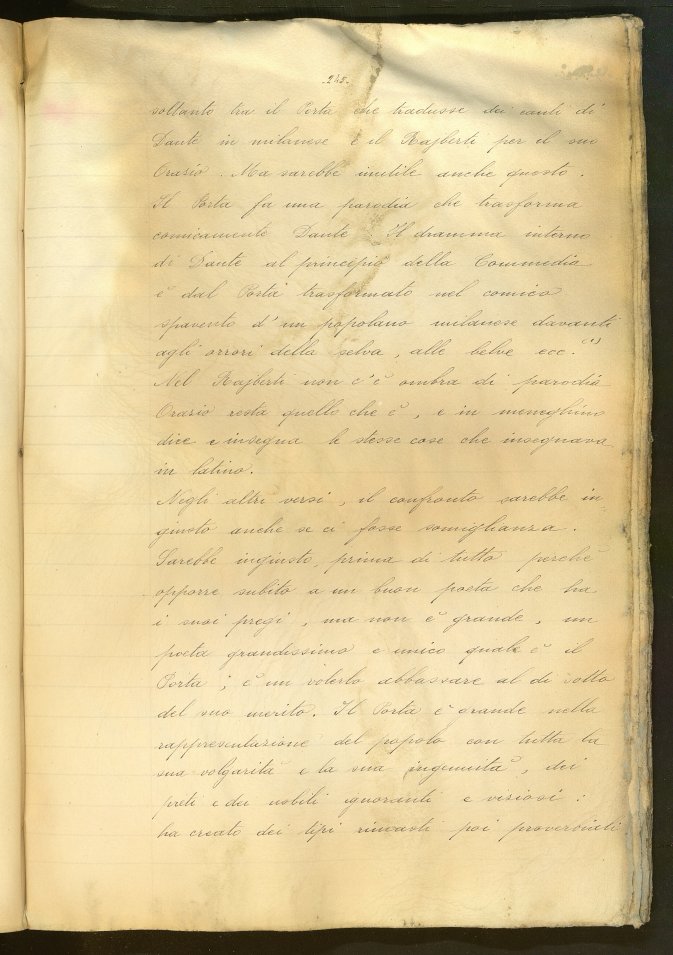 -248-
soltanto tra il Porta che tradusse dei canti di
Dante in milanese e il Rajberti per il suo
Orazio. Ma sarebbe inutile anche questo.
Il Porta fa una parodia che trasforma
comicamente Dante. Il dramma interno
di Dante al principio della Commedia
è dal Porta trasformato nel comico
spavento d'un popolano milanese davanti
agli orrori della selva, alle belve ecc. (1)
Nel Rajberti non c'è ombra di parodia
Orazio resta quello che è, e in meneghino
dice e insegna le stesse cose che insegnava
in latino.
Negli altri versi, il confronto sarebbe in
giusto anche se ci fosse somiglianza.
Sarebbe ingiusto, prima di tutto perchè
opporre subito a un buon poeta che ha
i suoi pregi, ma non è grande, un
poeta grandissimo e unico quale è il
Porta; è un volerlo abbassare al di sotto
del suo merito. Il Porta è grande nella
rappresentazione del popolo con tutta la
sua volgarità e la sua ingenuità, dei
preti e dei nobili ignoranti e viziosi:
ha creato dei tipi rimasti poi proverbiali